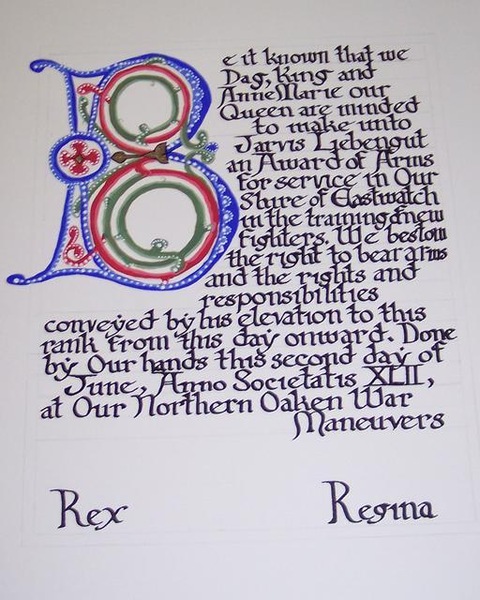 Be it known that we
Dag, King and
AnneMarie our
Queen are minded
to make unto
Jarvis Liebengut
an Award of Arms
for service in Our
Shire of Eastwatch
in the training of new
fighters. We bestow
the right to bear arms
and the rights and
responsibilities
conveyed by his elevation to this
rank from this day onward. Done
by Our hands this second day of
June, Anno Societatis XLII,
at Our Northern Oaken War
Maneuvers
Rex
Regina